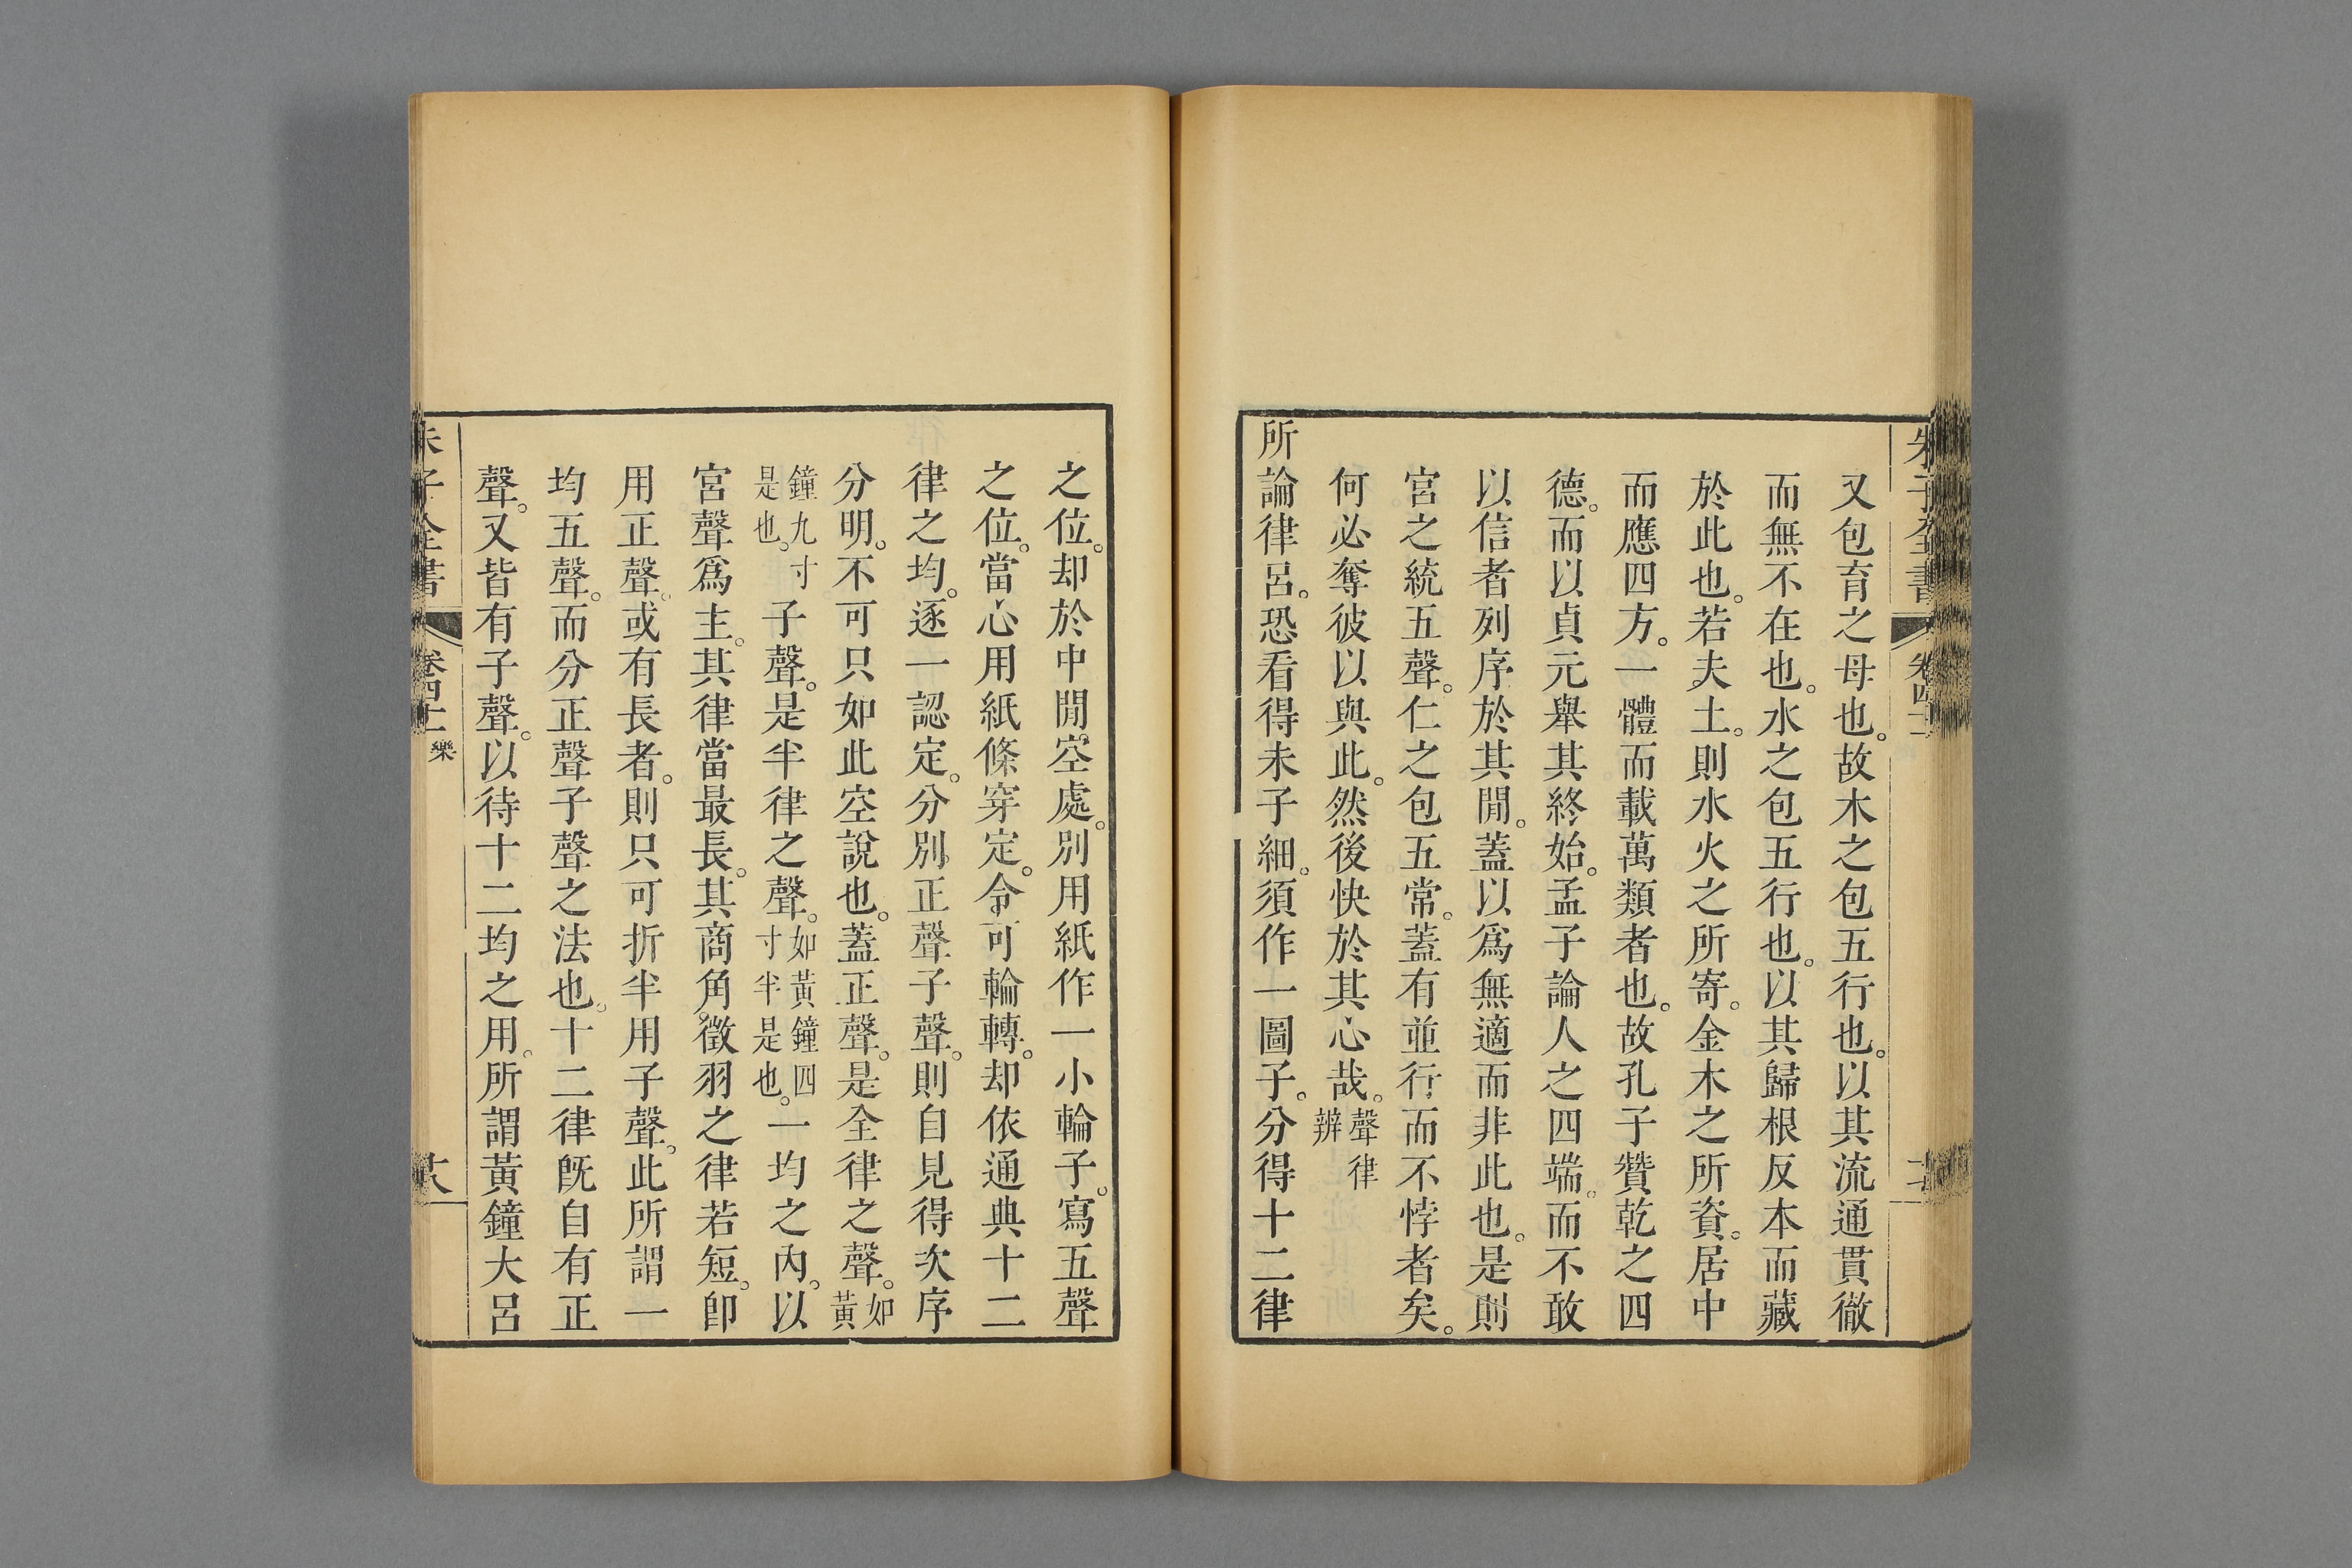 又包育之母也。故木之包五行也。以其流通貫徹
而無不在也。水之包五行也。以其歸根反本而藏
於此也。若夫土。則水火之所寄。金木之所資。居中
而應四方。一體而載萬類者也。故孔子贊乾之四
德。而以貞元舉其終始。孟子論人之四端。而不敢
以信者列序於其閒。蓋以爲無適而非此也。是則
宮之統五聲。仁之包五常。蓋有並行而不悖者矣。
何必奪彼以與此。然後快於其心哉。聲律辨
所論律呂。恐看得未子細。須作一圖子。分得十二律
之位。却於中閒空處。別用紙作一小輪子。寫五聲
之位。當心用紙條穿定。令可輪轉。却依通典十二
律之均。逐一認定。分別正聲子聲。則自見得次序
分明。不可只如此空說也。蓋正聲。是全律之聲。如黃
鐘九寸是也。子聲。是半律之聲。如黃鐘四寸半是也。一均之內。以
宮聲爲主。其律當最長。其商角。徵羽之律若短。卽
用正聲。或有長者。則只可折半用子聲。此所謂一
均五聲。而分正聲子聲之法也。十二律旣自有正
聲。又皆有子聲。以待十二均之用。所謂黃鐘大呂
朱子全書
卷四十一
樂